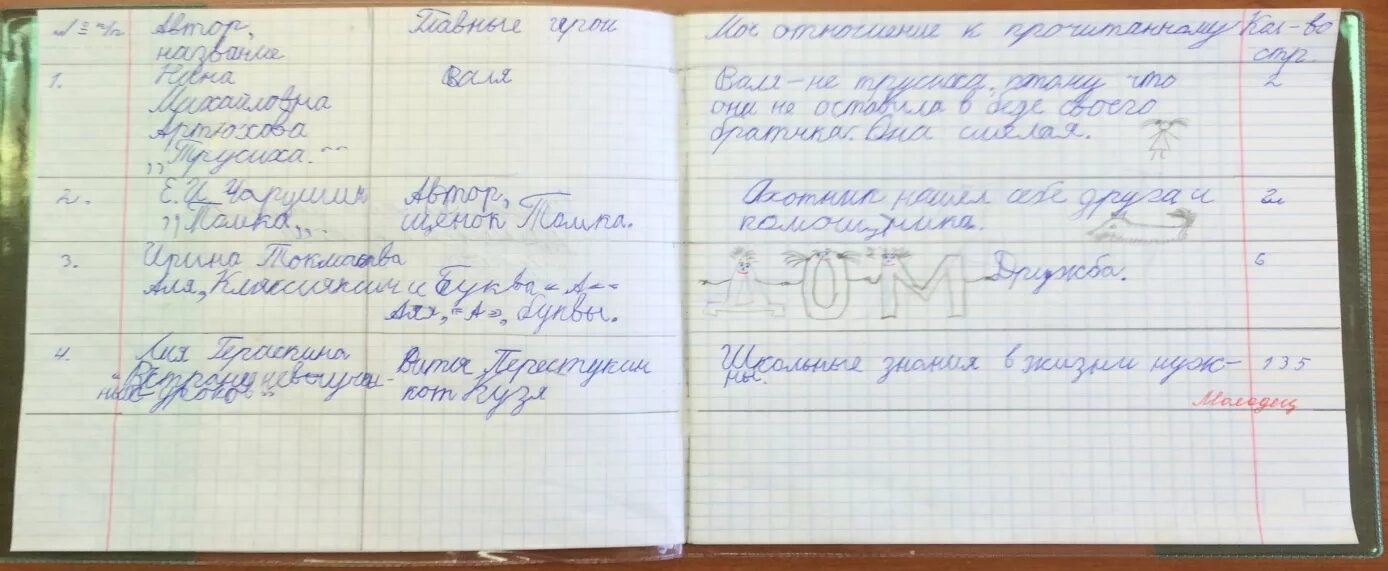 № п/п Автор, Главные герои Моё отношение к прочитанному Кол-во
название стр.
1. Нина Валя Валя - не трусиха, потому что 2
Михайловна они не оставила в беде своего
Артюхова братика. Она смелая.
„Трусиха."
2. Е.И. Чарушин Автор, Охотник нашёл себе друга и
„Томка„. щенок Томка. помощника.
3. Ирина Токмакова ДОМ Дружба. 6
Аля, Кляксич и Буквы "А"
Аля, "А", буквы.
4. Лия Гераскина Витя Перестукин Школьные знания в жизни нуж- 135
"В стране невыучен- кот Кузя ны.
ных уроков"
Молодец